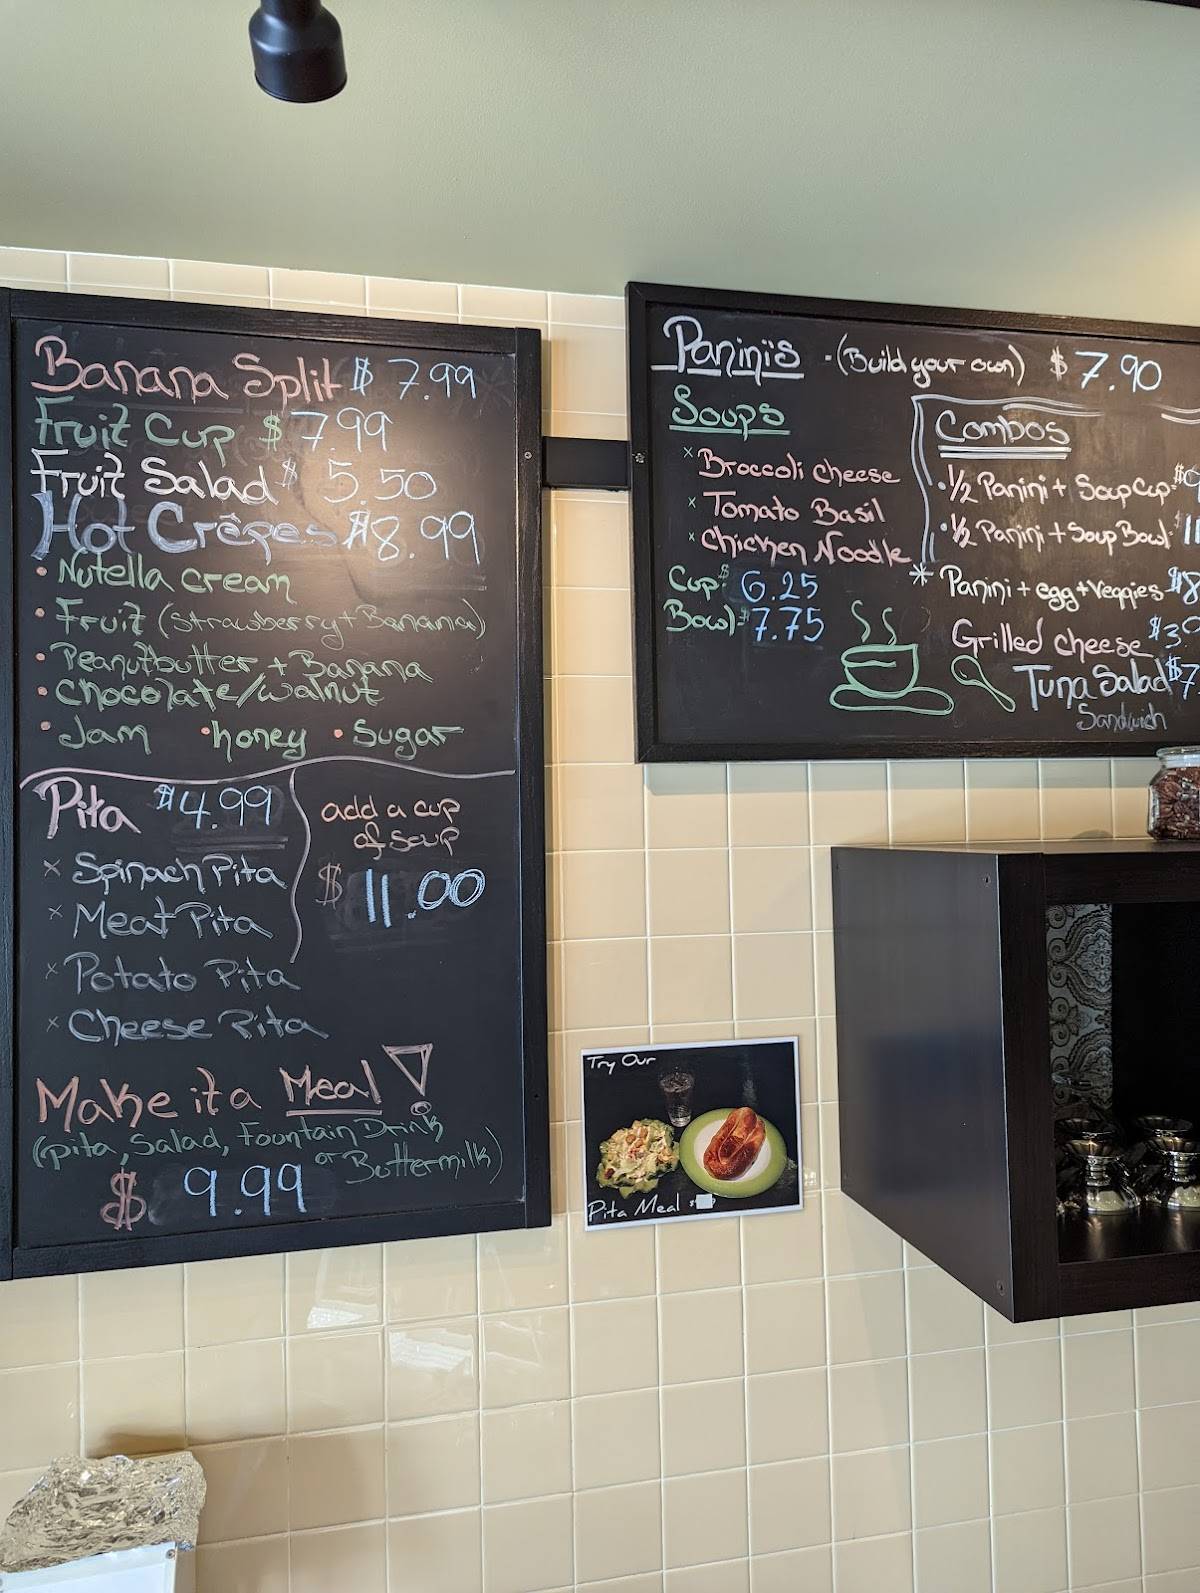 Banana Split $ 7.99
Fruit Cup $ 7.99
Fruit Salad $ 5.50
Hot Crêpes $8.99
• Nutella cream
• Fruit (strawberry + Banana)
• Peanutbutter + Banana
• chocolate/walnut
• Jam • honey • Sugar
Pita $4.99
x Spinach Pita
x Meat Pita
x Potato Pita
x Cheese Pita
add a cup
of soup
$ 11.00
Make it a Meal!
(pita, Salad, Fountain Drink
or Buttermilk)
$ 9.99
Panini's - (Build your own) $ 7.90
Soups
x Broccoli cheese
x Tomato Basil
x Chicken Noodle
Cup $ 6.25
Bowl $ 7.75
Combos
• 1/2 Panini + Soup Cup
• 1/2 Panini + Soup Bowl
* Panini + egg + Veggies
Grilled cheese
Tuna Salad
Sandwich
Try Our
Pita Meal